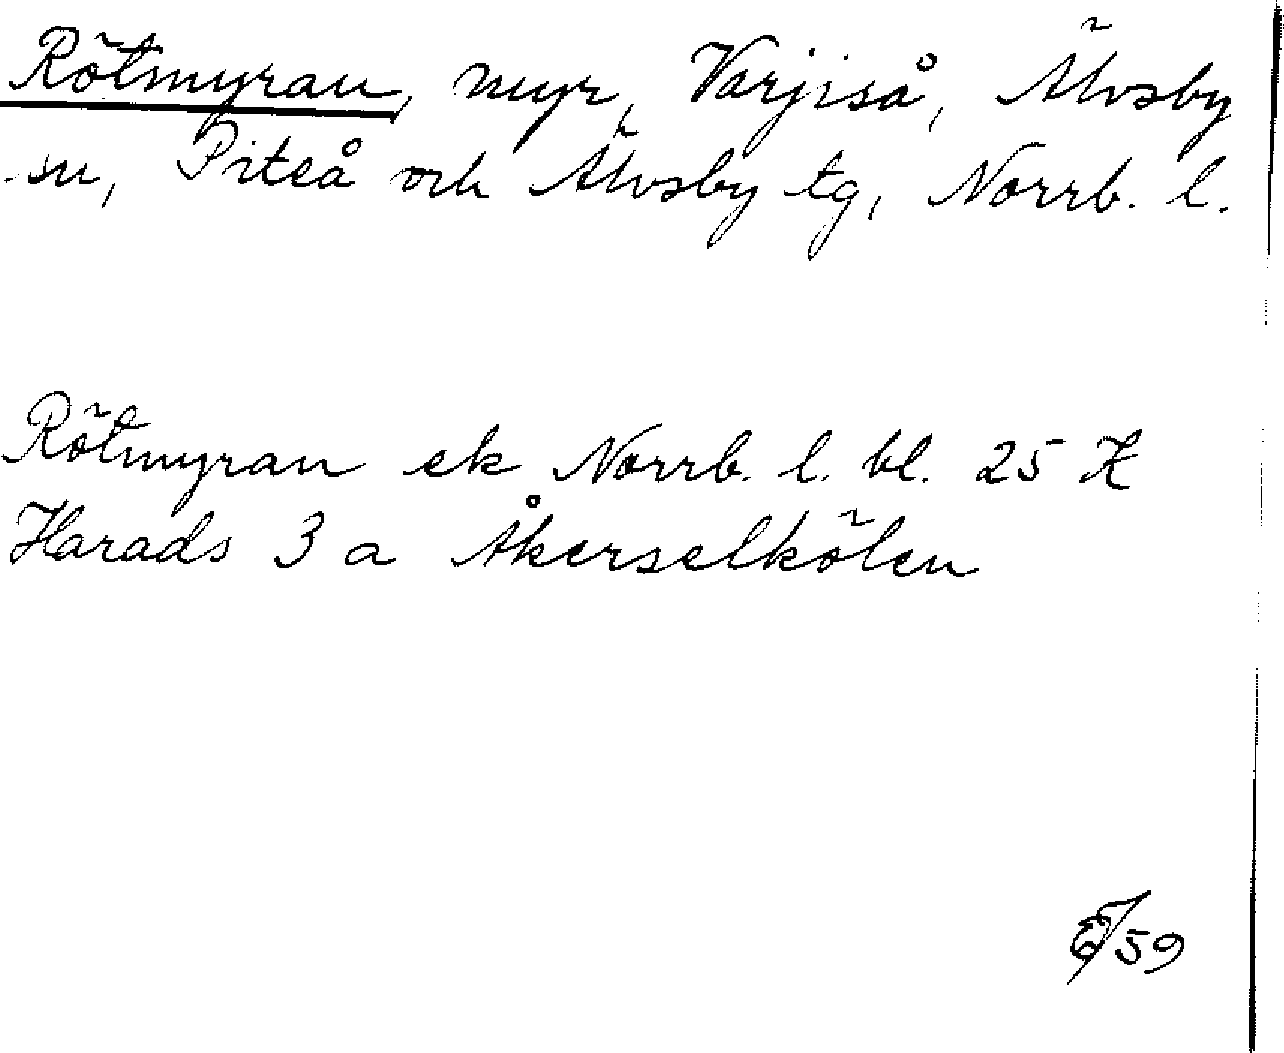 Rötmyran, myr, Varjiså, Älvsby
sn, Piteå och Älvsby tg, Norrb. l.
Rötmyran ek Norrb. l. bl. 25 K
Harads 3 a Åkerselkölen
59